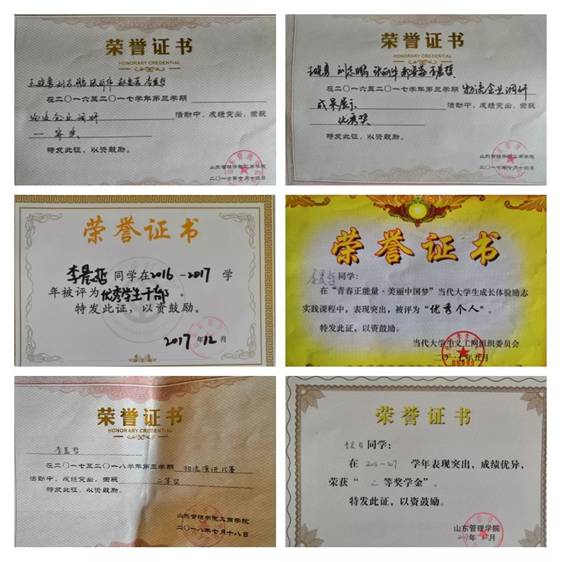 荣誉证书
HONORARY CREDENTIAL
在二〇一六至二〇一七学年第三学期
物流企业调研 活动中,成绩突出,荣获
一等奖
特发此证,以资鼓励。
山东管理学院工商学院
荣誉证书
HONORARY CREDENTIAL
在二〇一六至二〇一七学年第三学期 物流企业调研
成果展示 活动中,成绩突出,荣获
优秀奖
特发此证,以资鼓励。
山东管理学院工商学院
荣誉证书
李晨哲同学在2016-2017学
年被评为优秀学生干部
特发此证,以资鼓励。
2017年12月
荣誉证书
同学:
在“青春正能量·美丽中国梦”当代大学生成长体验励志
实践课程中,表现突出,被评为“优秀个人”。
特发此证,以资鼓励。
当代大学生义工网组织委员会
荣誉证书
HONORARY CREDENTIAL
在二〇一七至二〇一八学年第三学期 物流演讲比赛
活动中,成绩突出,荣获 二等奖
特发此证,以资鼓励。
山东管理学院工商学院
二〇一八年七月十八日
荣誉证书
同学:
在 2016-2017 学年表现突出,成绩优异,
荣获“ 二等奖学金”。
特发此证,以资鼓励。
山东管理学院